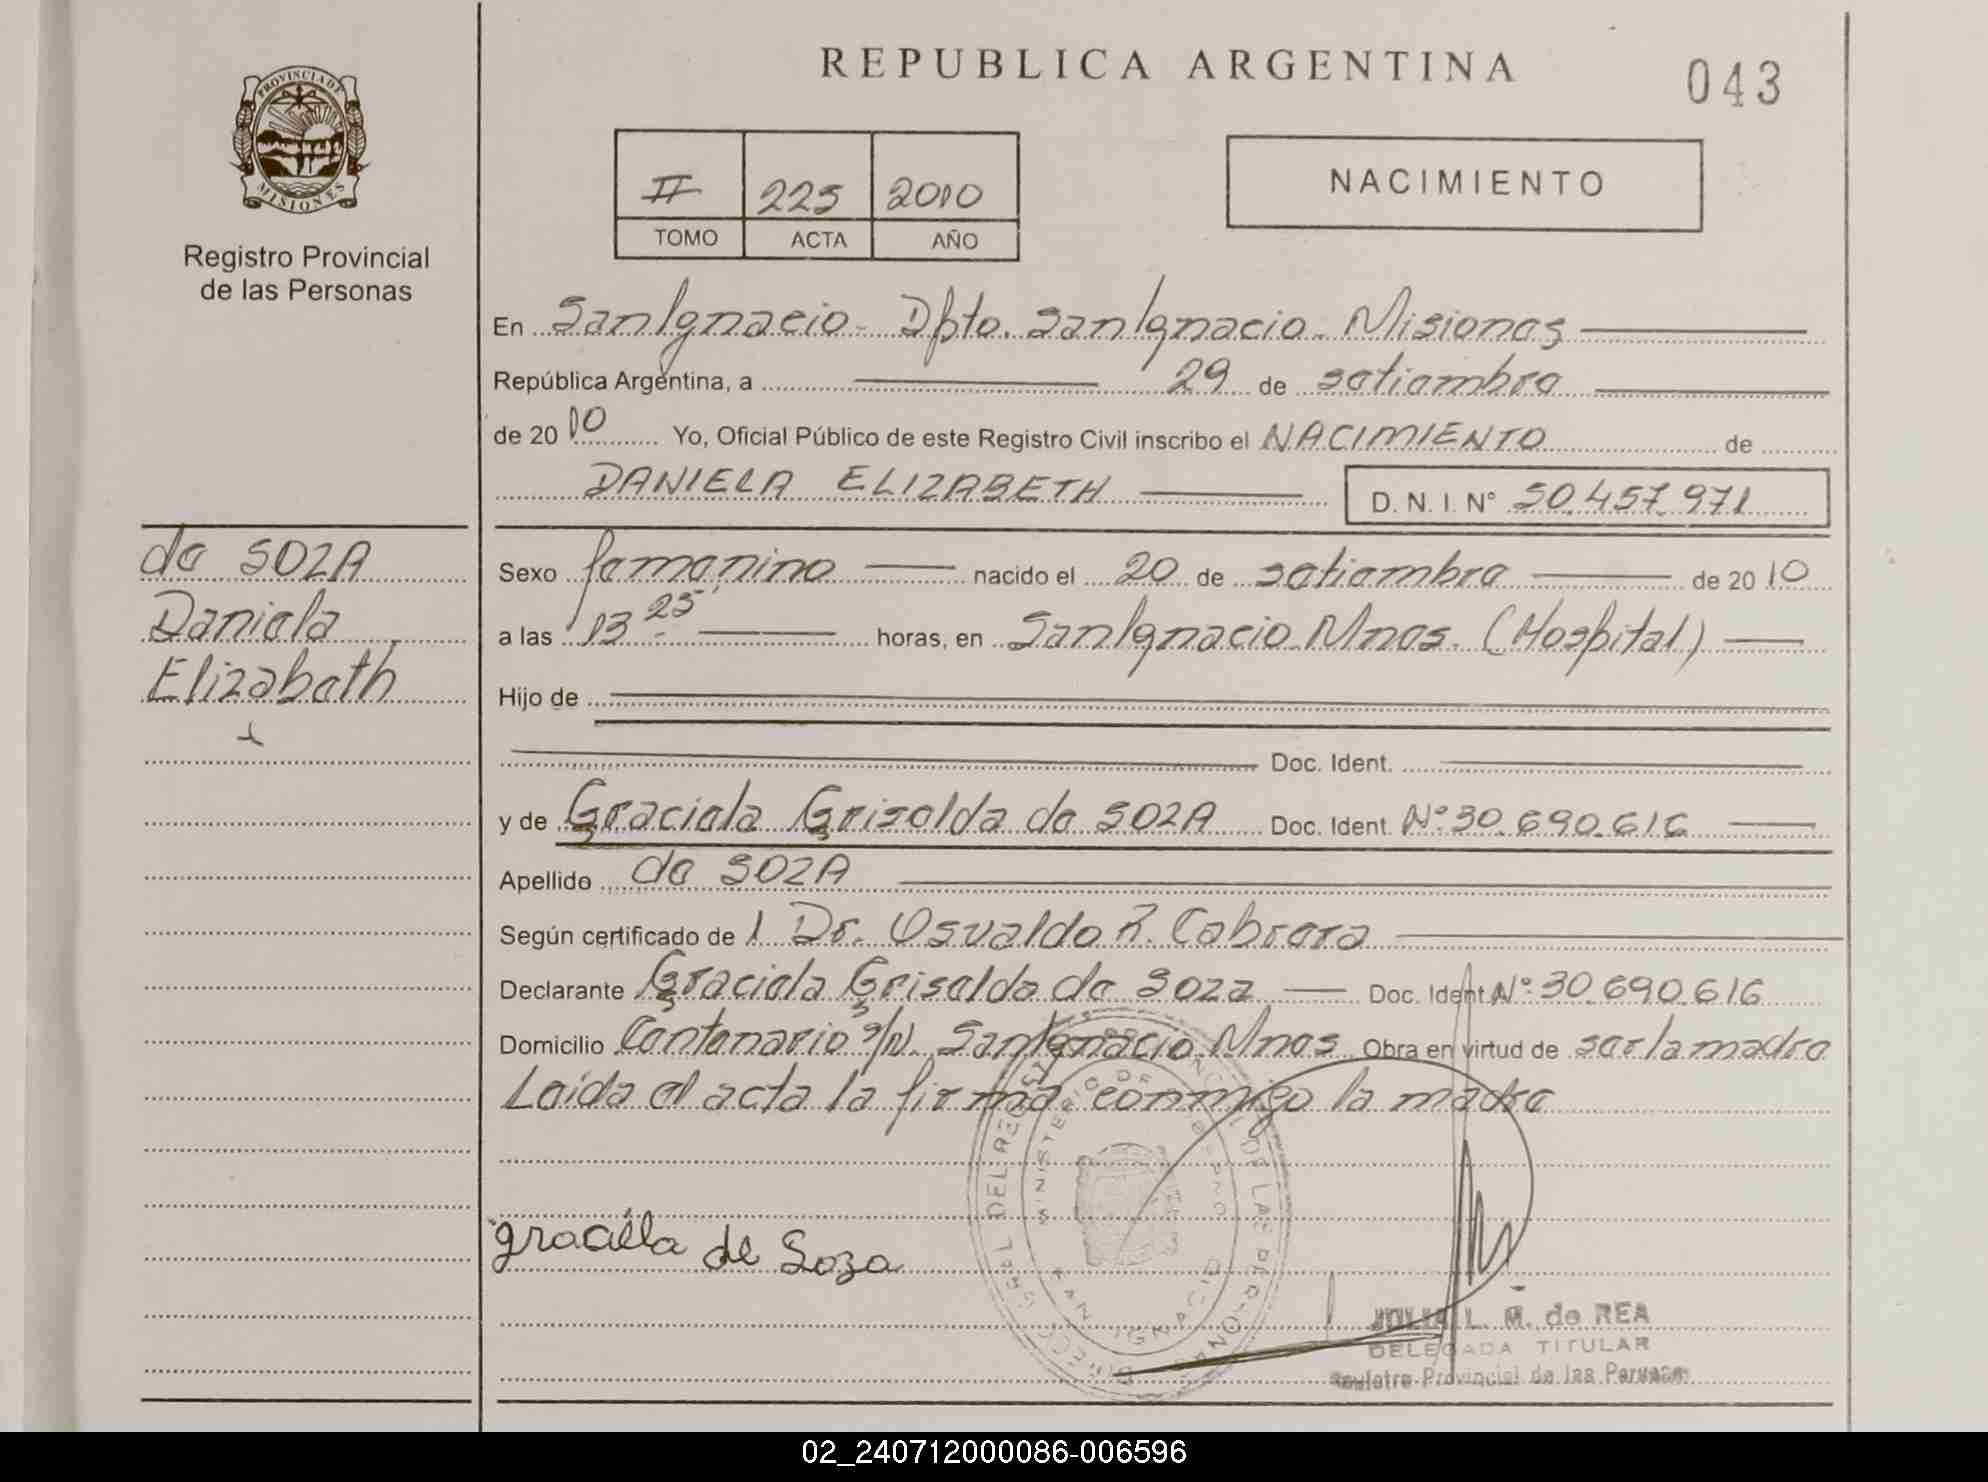 REPUBLICA ARGENTINA
043
PROVINCIA DE
MISIONES
Registro Provincial
de las Personas
II 225 2010
TOMO ACTA AÑO
NACIMIENTO
En San Ignacio - Dpto. San Ignacio - Misiones
República Argentina, a 29 de setiembre
de 2010 Yo, Oficial Público de este Registro Civil inscribo el NACIMIENTO de
DANIELA ELIZABETH D. N. I. N° 50.457.971
de SOZA
Daniela
Elizabeth
Sexo femenino nacido el 20 de setiembre de 2010
a las 13 25' horas, en San Ignacio Mnes. (Hospital)
Hijo de
Doc. Ident.
y de Graciela Griselda de SOZA Doc. Ident. N° 30.690.616
Apellido de SOZA
Según certificado de l Dr. Osvaldo R. Cabrera
Declarante Graciela Griselda de Soza Doc. Ident. N° 30.690.616
Domicilio Centenario s/n. San Ignacio Mnes Obra en virtud de ser la madre
Leida el acta la firma conmigo la madre
graciela de Soza
MINISTERIO DE GOBIERNO
SAN IGNACIO
JULIA L. M. de REA
DELEGADA TITULAR
Registro Provincial de las Personas
02_240712000086-006596